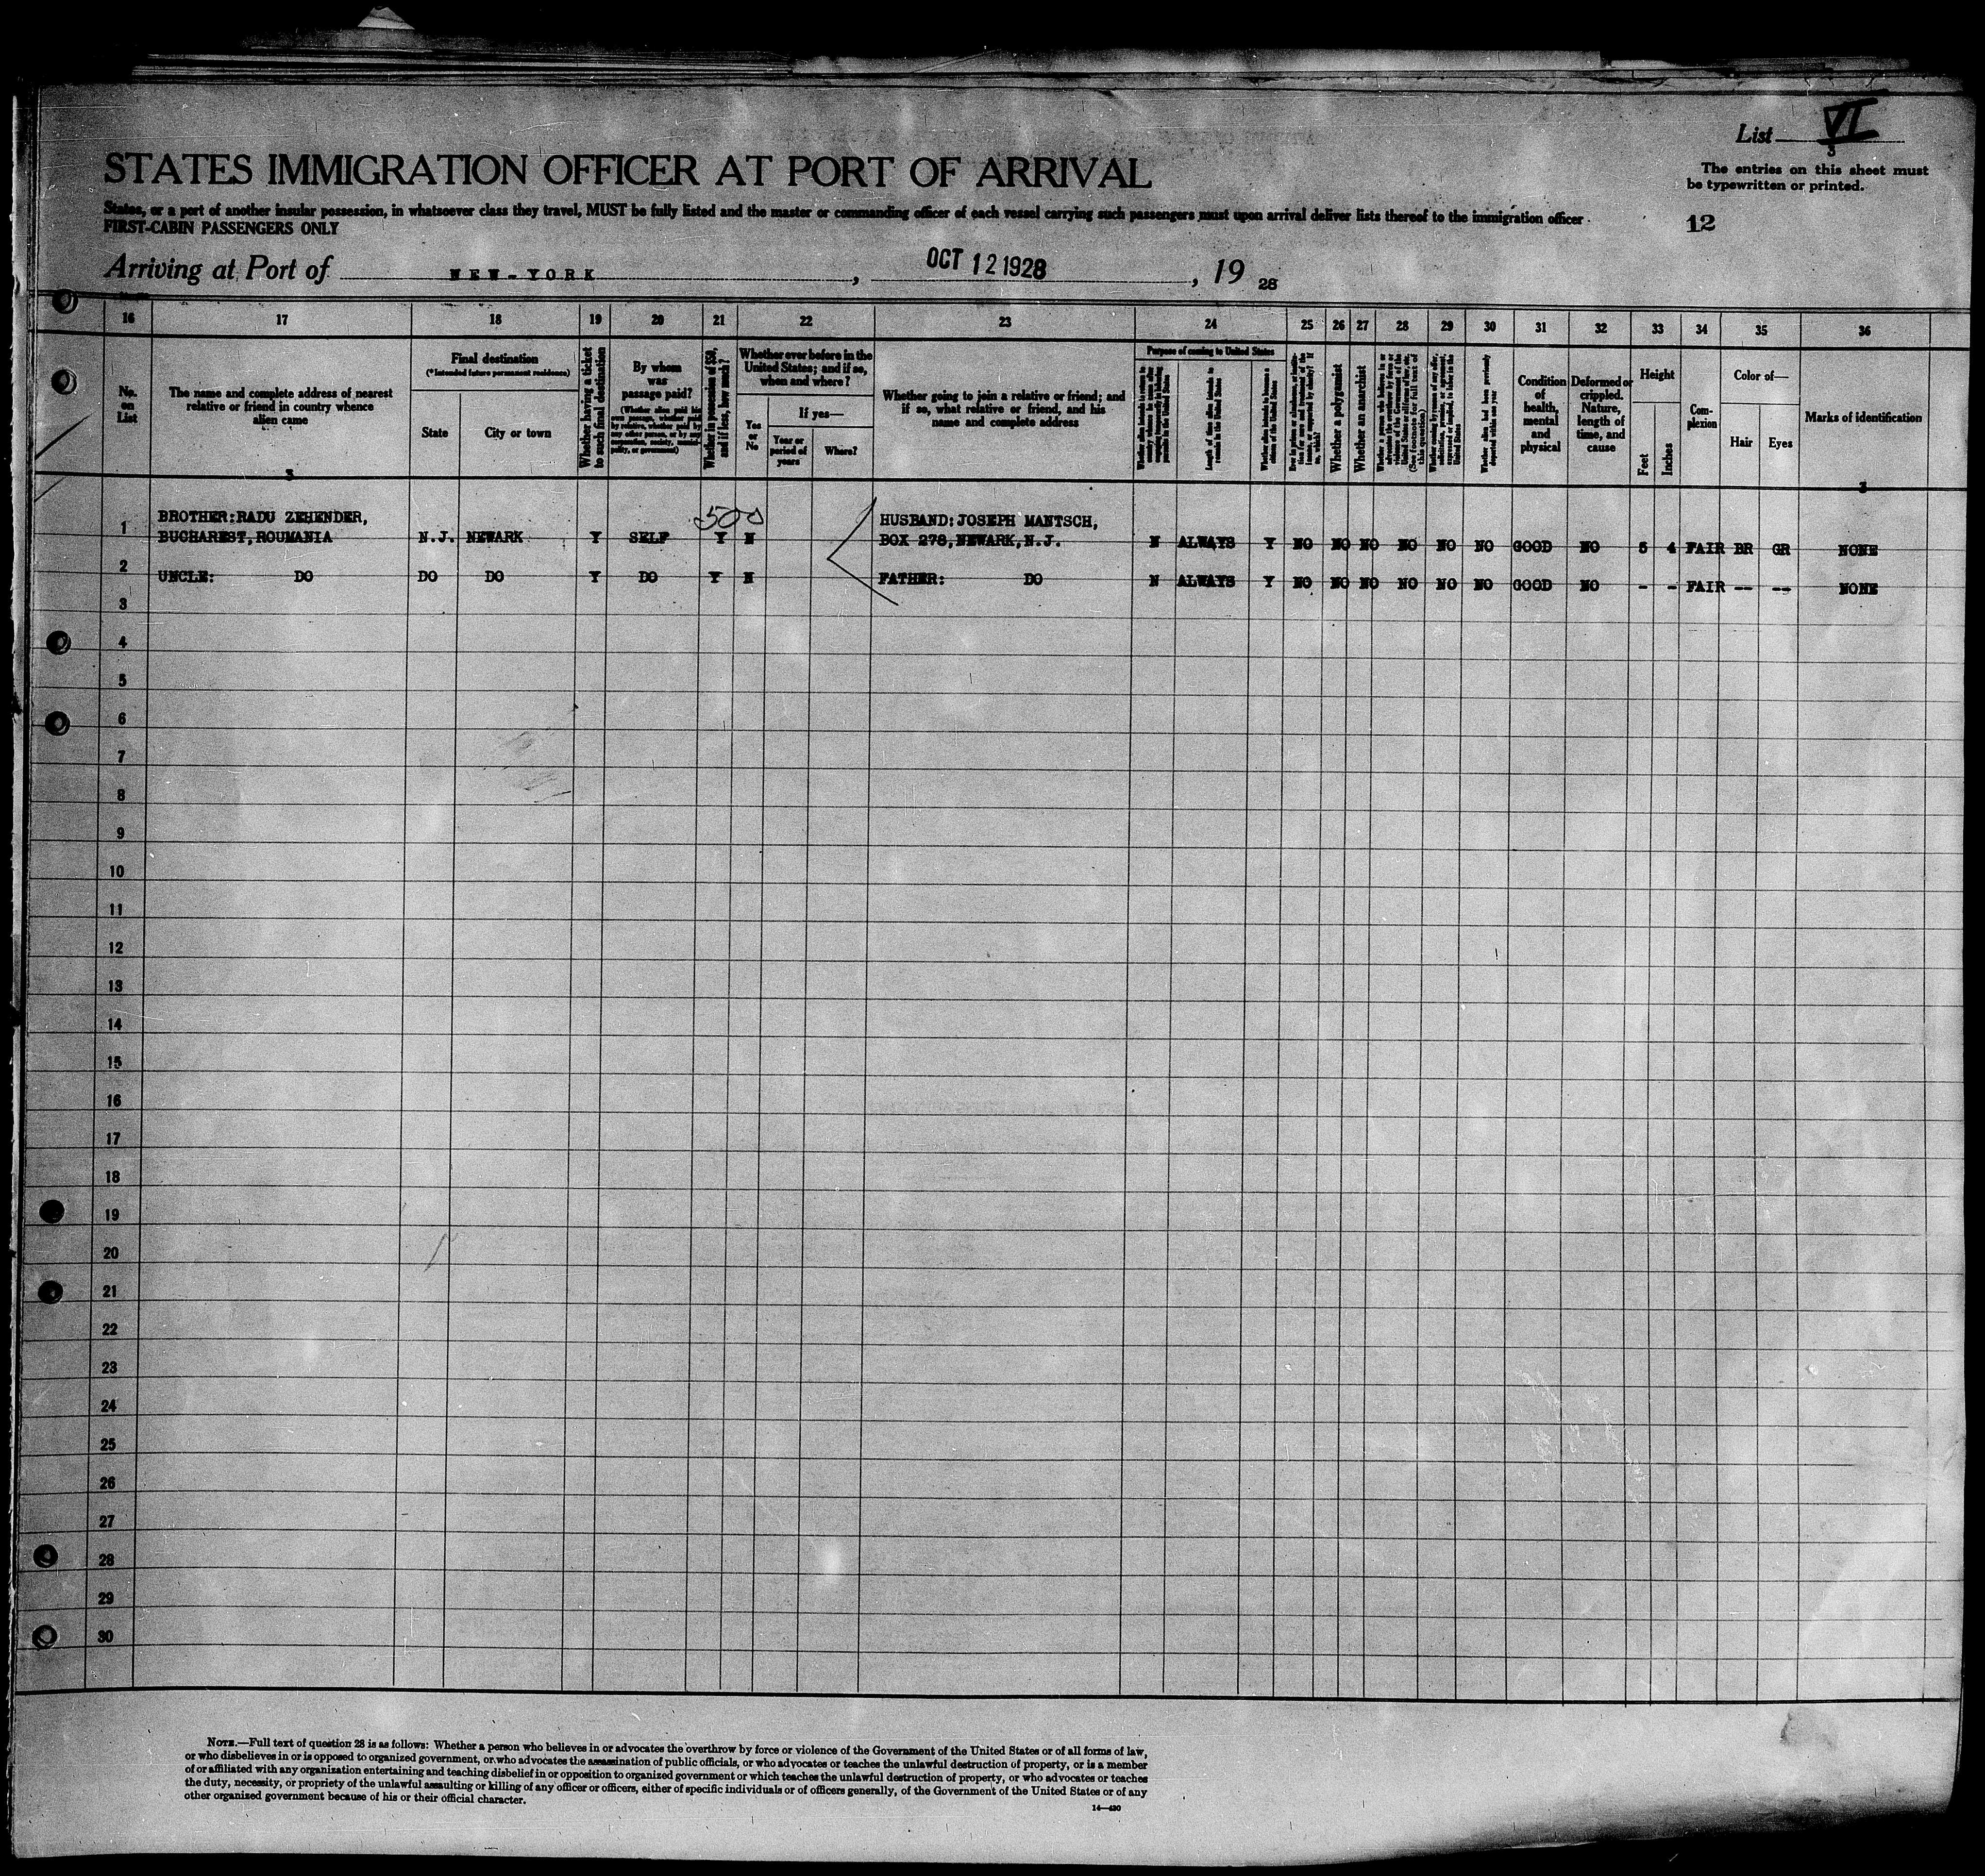 List VI
S
The entries on this sheet must
be typewritten or printed.
12
STATES IMMIGRATION OFFICER AT PORT OF ARRIVAL
States, or a port of another insular possession, in whatsoever class they travel, MUST be fully listed and the master or commanding officer of each vessel carrying such passengers must upon arrival deliver lists thereof to the immigration officer
FIRST-CABIN PASSENGERS ONLY
Arriving at Port of NEW-YORK, OCT 12 1928, 19 28
16 17 18 19 20 21 22 23 24 25 26 27 28 29 30 31 32 33 34 35 36
No.
on
List
The name and complete address of nearest
relative or friend in country whence
alien came
S
Final destination
(*Intended future permanent residence)
State
City or town
Whether having a ticket
to such final destination
By whom
was
passage paid?
(Whether alien paid his
own passage, whether paid
by relative, whether paid by
any other person, or by any
corporation, society, munici-
pality, or government)
Whether in possession of $50,
and if less, how much?
Whether ever before in the
United States; and if so,
when and where?
Yes
or
No
If yes—
Year or
period of
years
Where?
Whether going to join a relative or friend; and
if so, what relative or friend, and his
name and complete address
Purpose of coming to United States
Length of time alien intends to
remain in the United States
Whether alien intends to become a
citizen of the United States
Whether a polygamist
Whether an anarchist
(See footnote for full text of
this question)
Whether alien had been previously
deported within one year
Condition
of
health,
mental
and
physical
Deformed or
crippled.
Nature,
length of
time, and
cause
Height
Feet
Inches
Com-
plexion
Color of—
Hair
Eyes
Marks of identification
S
1 BROTHER:RADU ZEHENDER, 500 HUSBAND: JOSEPH MANTSCH,
BUCHAREST, ROUMANIA N.J. NEWARK Y SELF Y N BOX 278, NEWARK, N.J. N ALWAYS Y NO NO NO NO NO NO GOOD NO 5 4 FAIR BR GR NONE
2 UNCLE: DO DO DO Y DO Y N FATHER: DO N ALWAYS Y NO NO NO NO NO NO GOOD NO - - FAIR -- -- NONE
3
4
5
6
7
8
9
10
11
12
13
14
15
16
17
18
19
20
21
22
23
24
25
26
27
28
29
30
NOTE.—Full text of question 28 is as follows: Whether a person who believes in or advocates the overthrow by force or violence of the Government of the United States or of all forms of law,
or who disbelieves in or is opposed to organized government, or who advocates the assassination of public officials, or who advocates or teaches the unlawful destruction of property, or is a member
of or affiliated with any organization entertaining and teaching disbelief in or opposition to organized government or which teaches the unlawful destruction of property, or who advocates or teaches
the duty, necessity, or propriety of the unlawful assaulting or killing of any officer or officers, either of specific individuals or of officers generally, of the Government of the United States or of any
other organized government because of his or their official character.
14—430